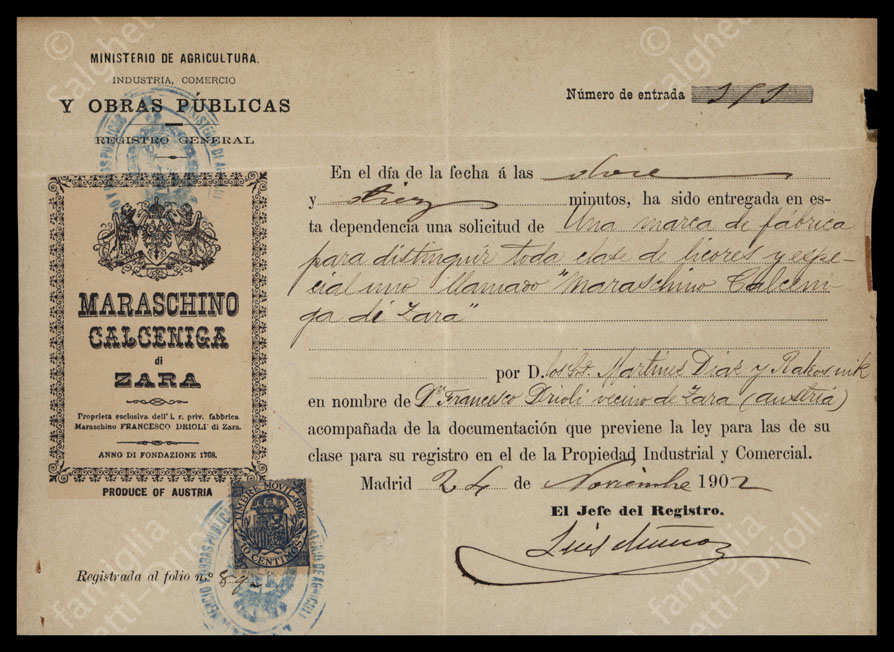 MINISTERIO DE AGRICULTURA.
INDUSTRIA, COMERCIO
Y OBRAS PÚBLICAS
REGISTRO GENERAL
Número de entrada
MARASCHINO
CALCENIGA
di
ZARA
Proprieta esclusiva dell' i. r. priv. fabbrica
Maraschino FRANCESCO DRIOLI di Zara.
ANNO DI FONDAZIONE 1768.
PRODUCE OF AUSTRIA
En el día de la fecha á las doce
y diez minutos, ha sido entregada en es-
ta dependencia una solicitud de Una marca de fábrica
para distinguir toda clase de licores y espe-
cial uno llamado "Maraschino Calceni-
ga di Zara"
por D. los Sres. Martines Diaz y Rakosnik
en nombre de Dn Francesco Drioli vecino de Zara (Austria)
acompañada de la documentación que previene la ley para las de su
clase para su registro en el de la Propiedad Industrial y Comercial.
Madrid 24 de Noviembre 1902
El Jefe del Registro.
TIMBRE MOVIL 1902
10 CENTIMOS
Registrada al folio n.º
© famiglia
Salghetti-Drioli